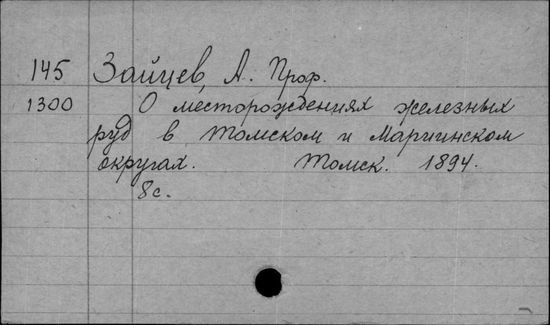 145 Зайцев, А. Проф.
1300 О месторождениях железных
руд в Томском и Мариинском
округах. Томск. 1894.
8с.